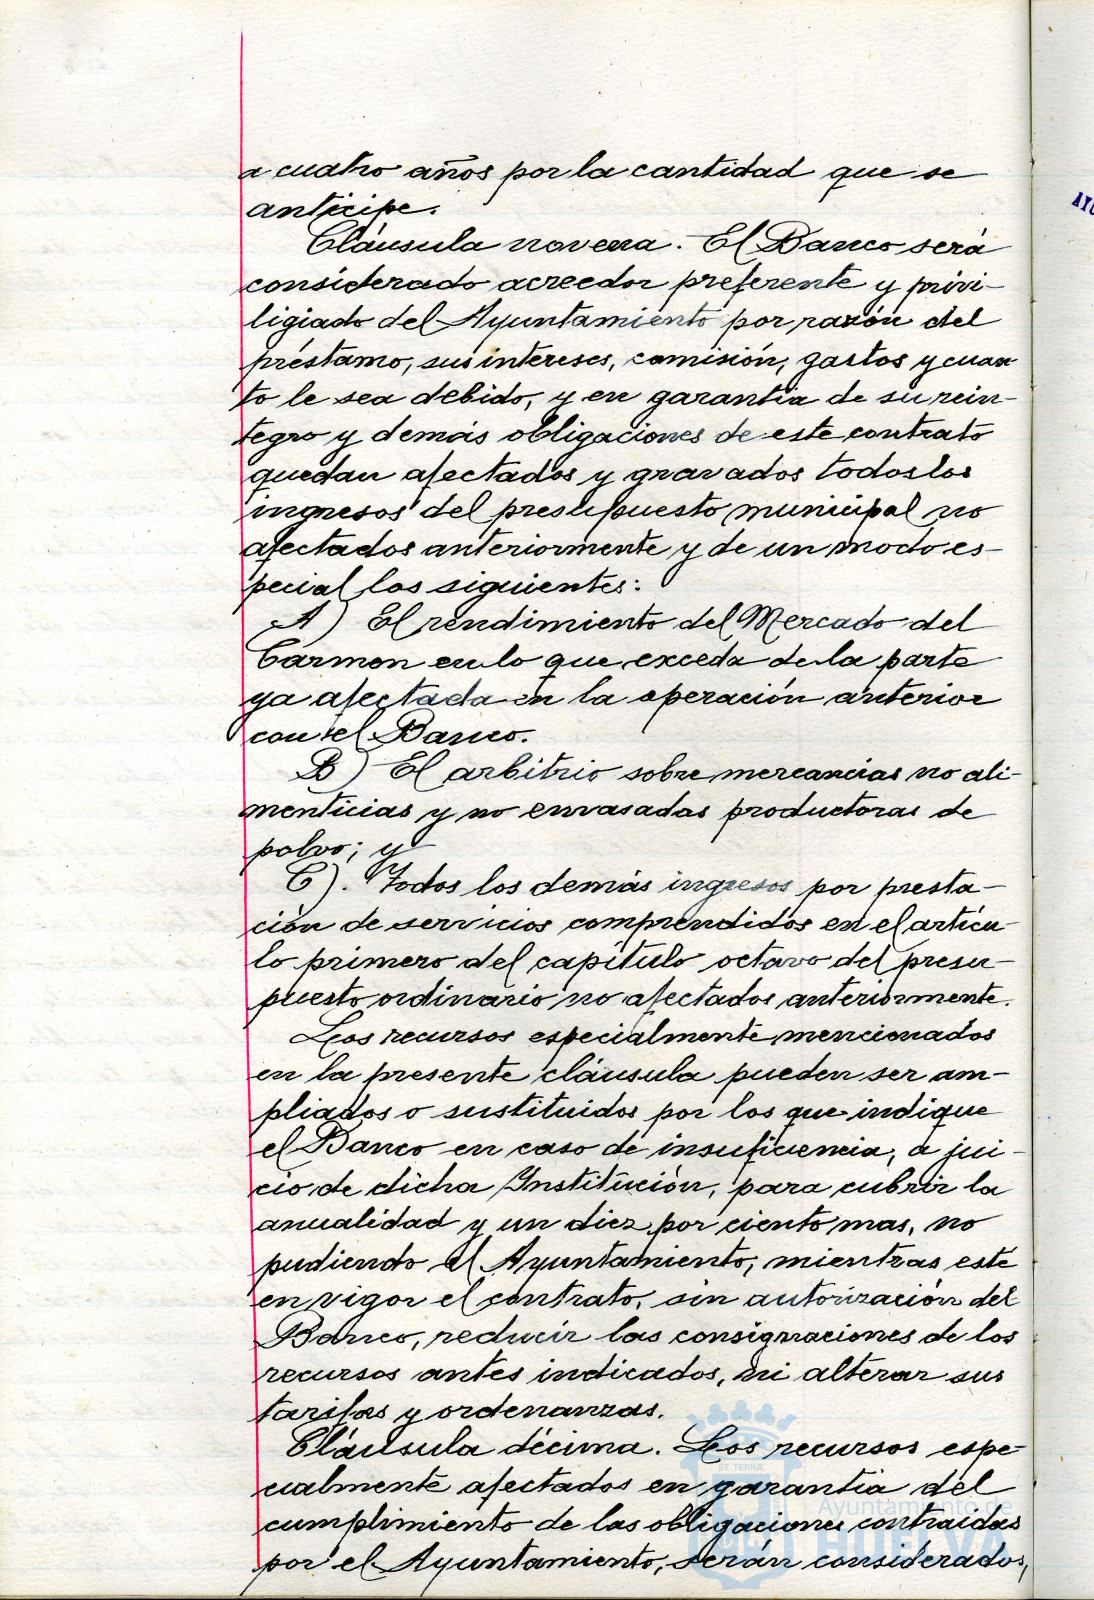 a cuatro años por la cantidad que se
anticipe.
Cláusula novena. El Banco será
considerado acreedor preferente y privi-
ligiado del Ayuntamiento por razón del
préstamo, sus intereses, comisión, gastos y cuan
to le sea debido, y en garantía de su rein-
tegro y demás obligaciones de este contrato
quedan afectados y gravados todos los
ingresos del presupuesto municipal no
afectados anteriormente y de un modo es-
pecial los siguientes:
A) El rendimiento del Mercado del
Carmen en lo que exceda de la parte
ya afectada en la operación anterior
con el Banco.
B) El arbitrio sobre mercancías no ali-
menticias y no envasadas productoras de
polvo; y
C). Todos los demás ingresos por presta-
ción de servicios comprendidos en el artícu-
lo primero del capítulo octavo del presu-
puesto ordinario no afectados anteriormente.
Los recursos especialmente mencionados
en la presente cláusula pueden ser am-
pliados o sustituidos por los que indique
el Banco en caso de insuficiencia, a jui-
cio de dicha Institución, para cubrir la
anualidad y un diez por ciento mas, no
pudiendo el Ayuntamiento, mientras esté
en vigor el contrato, sin autorización del
Banco, reducir las consignaciones de los
recursos antes indicados, ni alterar sus
tarifas y ordenanzas.
Cláusula décima. Los recursos espe-
cialmente afectados en garantía del
cumplimiento de las obligaciones contraídas
por el Ayuntamiento, serán considerados,
AYU
ET TERRÆ
Ayuntamiento de
HUELVA